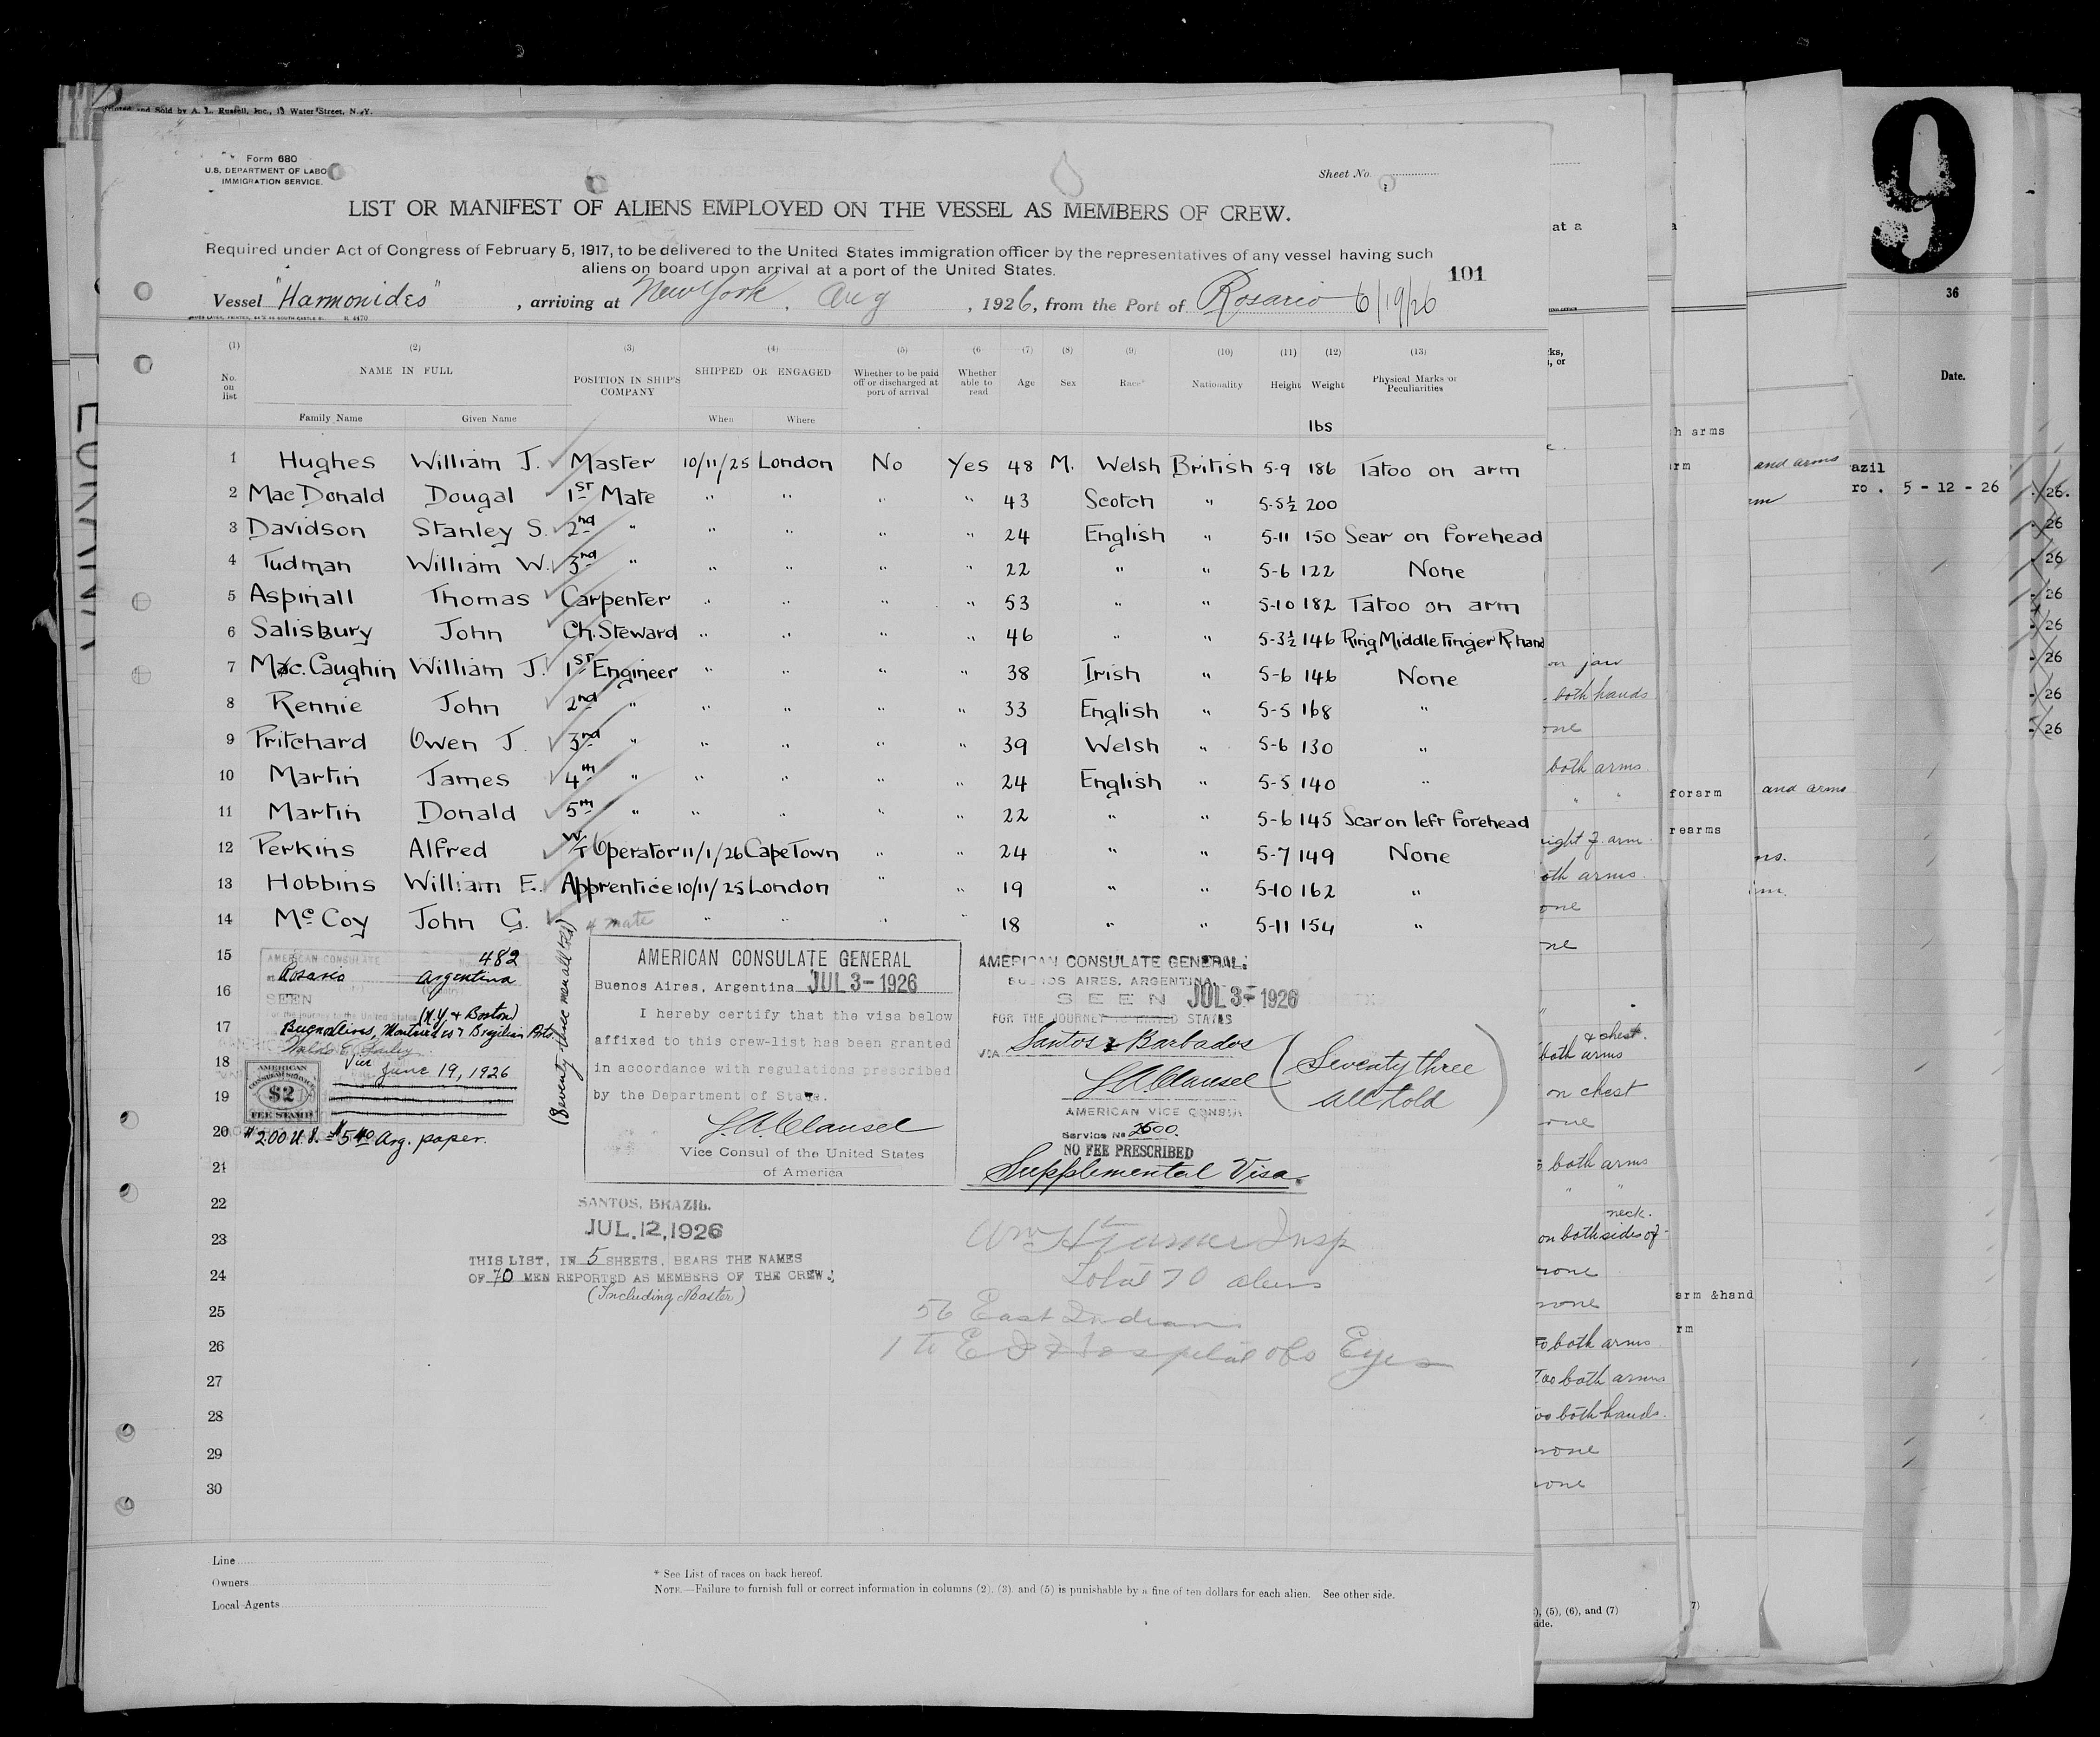 Printed and Sold by A. L. Russell, Inc., 13 Water Street, N.Y.
Form 680
U.S. DEPARTMENT OF LABO
IMMIGRATION SERVICE.
Sheet No.
LIST OR MANIFEST OF ALIENS EMPLOYED ON THE VESSEL AS MEMBERS OF CREW.
Required under Act of Congress of February 5, 1917, to be delivered to the United States immigration officer by the representatives of any vessel having such
aliens on board upon arrival at a port of the United States.
101
Vessel "Harmonides", arriving at New York, Aug, 1926, from the Port of Rosario 6/19/26
(1) (2) (3) (4) (5) (6 (7) (8) (9) (10) (11) (12) (13)
No. on list
NAME IN FULL
Family Name Given Name
POSITION IN SHIP'S COMPANY
SHIPPED OR ENGAGED
When Where
Whether to be paid off or discharged at port of arrival
Whether able to read
Age Sex Race* Nationality Height Weight
Physical Marks or Peculiarities
lbs
1 Hughes William J. Master 10/11/25 London No Yes 48 M. Welsh British 5-9 186 Tatoo on arm
2 MacDonald Dougal 1st Mate " " " " 43 Scotch " 5-5½ 200
3 Davidson Stanley S. 2nd " " " " " 24 English " 5-11 150 Scar on forehead
4 Tudman William W. 3rd " " " " " 22 " " 5-6 122 None
5 Aspinall Thomas Carpenter " " " " 53 " " 5-10 182 Tatoo on arm
6 Salisbury John Ch. Steward " " " " 46 " " 5-3½ 146 Ring Middle Finger R. hand
7 Mac.Caughin William J. 1st Engineer " " " " 38 Irish " 5-6 146 None
8 Rennie John 2nd " " " " " 33 English " 5-5 168 "
9 Pritchard Owen J. 3rd " " " " " 39 Welsh " 5-6 130 "
10 Martin James 4th " " " " " 24 English " 5-5 140 "
11 Martin Donald 5th " " " " " 22 " " 5-6 145 Scar on left forehead
12 Perkins Alfred W/T Operator 11/1/26 Cape Town " " 24 " " 5-7 149 None
13 Hobbins William E. Apprentice 10/11/25 London " " 19 " " 5-10 162 "
14 McCoy John G. 4 mate " " " " 18 " " 5-11 154 "
15
16
17
18
19
20
21
22
23
24
25
26
27
28
29
30
AMERICAN CONSULATE 482
at Rosario Argentina
SEEN
for the journey to the United States (N.Y. & Boston)
Buenos Aires, Montevideo & Brazilian Ports
Vice
June 19, 1926
AMERICAN
CONSULAR SERVICE
$2
FEE STAMP
$2.00 U.S. = $5.40 Arg. paper.
(Seventy-three men all told)
AMERICAN CONSULATE GENERAL
Buenos Aires, Argentina JUL 3-1926
I hereby certify that the visa below
affixed to this crew-list has been granted
in accordance with regulations prescribed
by the Department of State.
G.A. Clausel
Vice Consul of the United States
of America
AMERICAN CONSULATE GENERAL.
BUENOS AIRES, ARGENTINA.
SEEN JUL 3-1926
FOR THE JOURNEY TO UNITED STATES
VIA Santos & Barbados
G.A. Clausel
(Seventy three
all told)
AMERICAN VICE CONSUL
Service No 2500.
NO FEE PRESCRIBED
Supplemental Visa.
SANTOS, BRAZIL.
JUL. 12, 1926
THIS LIST, IN 5 SHEETS, BEARS THE NAMES
OF 70 MEN REPORTED AS MEMBERS OF THE CREW.
(Including Master)
Wm H Turner Insp
Total 70 aliens
56 East Indians
1 to E I Hospital obs Eyes
Line
Owners
Local Agents
* See List of races on back hereof.
NOTE.—Failure to furnish full or correct information in columns (2), (3) and (5) is punishable by a fine of ten dollars for each alien. See other side.
9
36
Date.
at a
ks,
, or
h arms
rm
and arms
azil
ro . 5 - 12 - 26
on jaw
both hands
one
both arms
forarm
and arms
rearms
oth arms
one
ne
& chest.
both arms
on chest
one
both arms
neck.
on both sides of
none
none
arm &hand
rm
o both arms
Too both arms
oo both hands.
none
one
), (5), (6), and (7)
side.
7)
26.
26
26
26
26
26
26
26